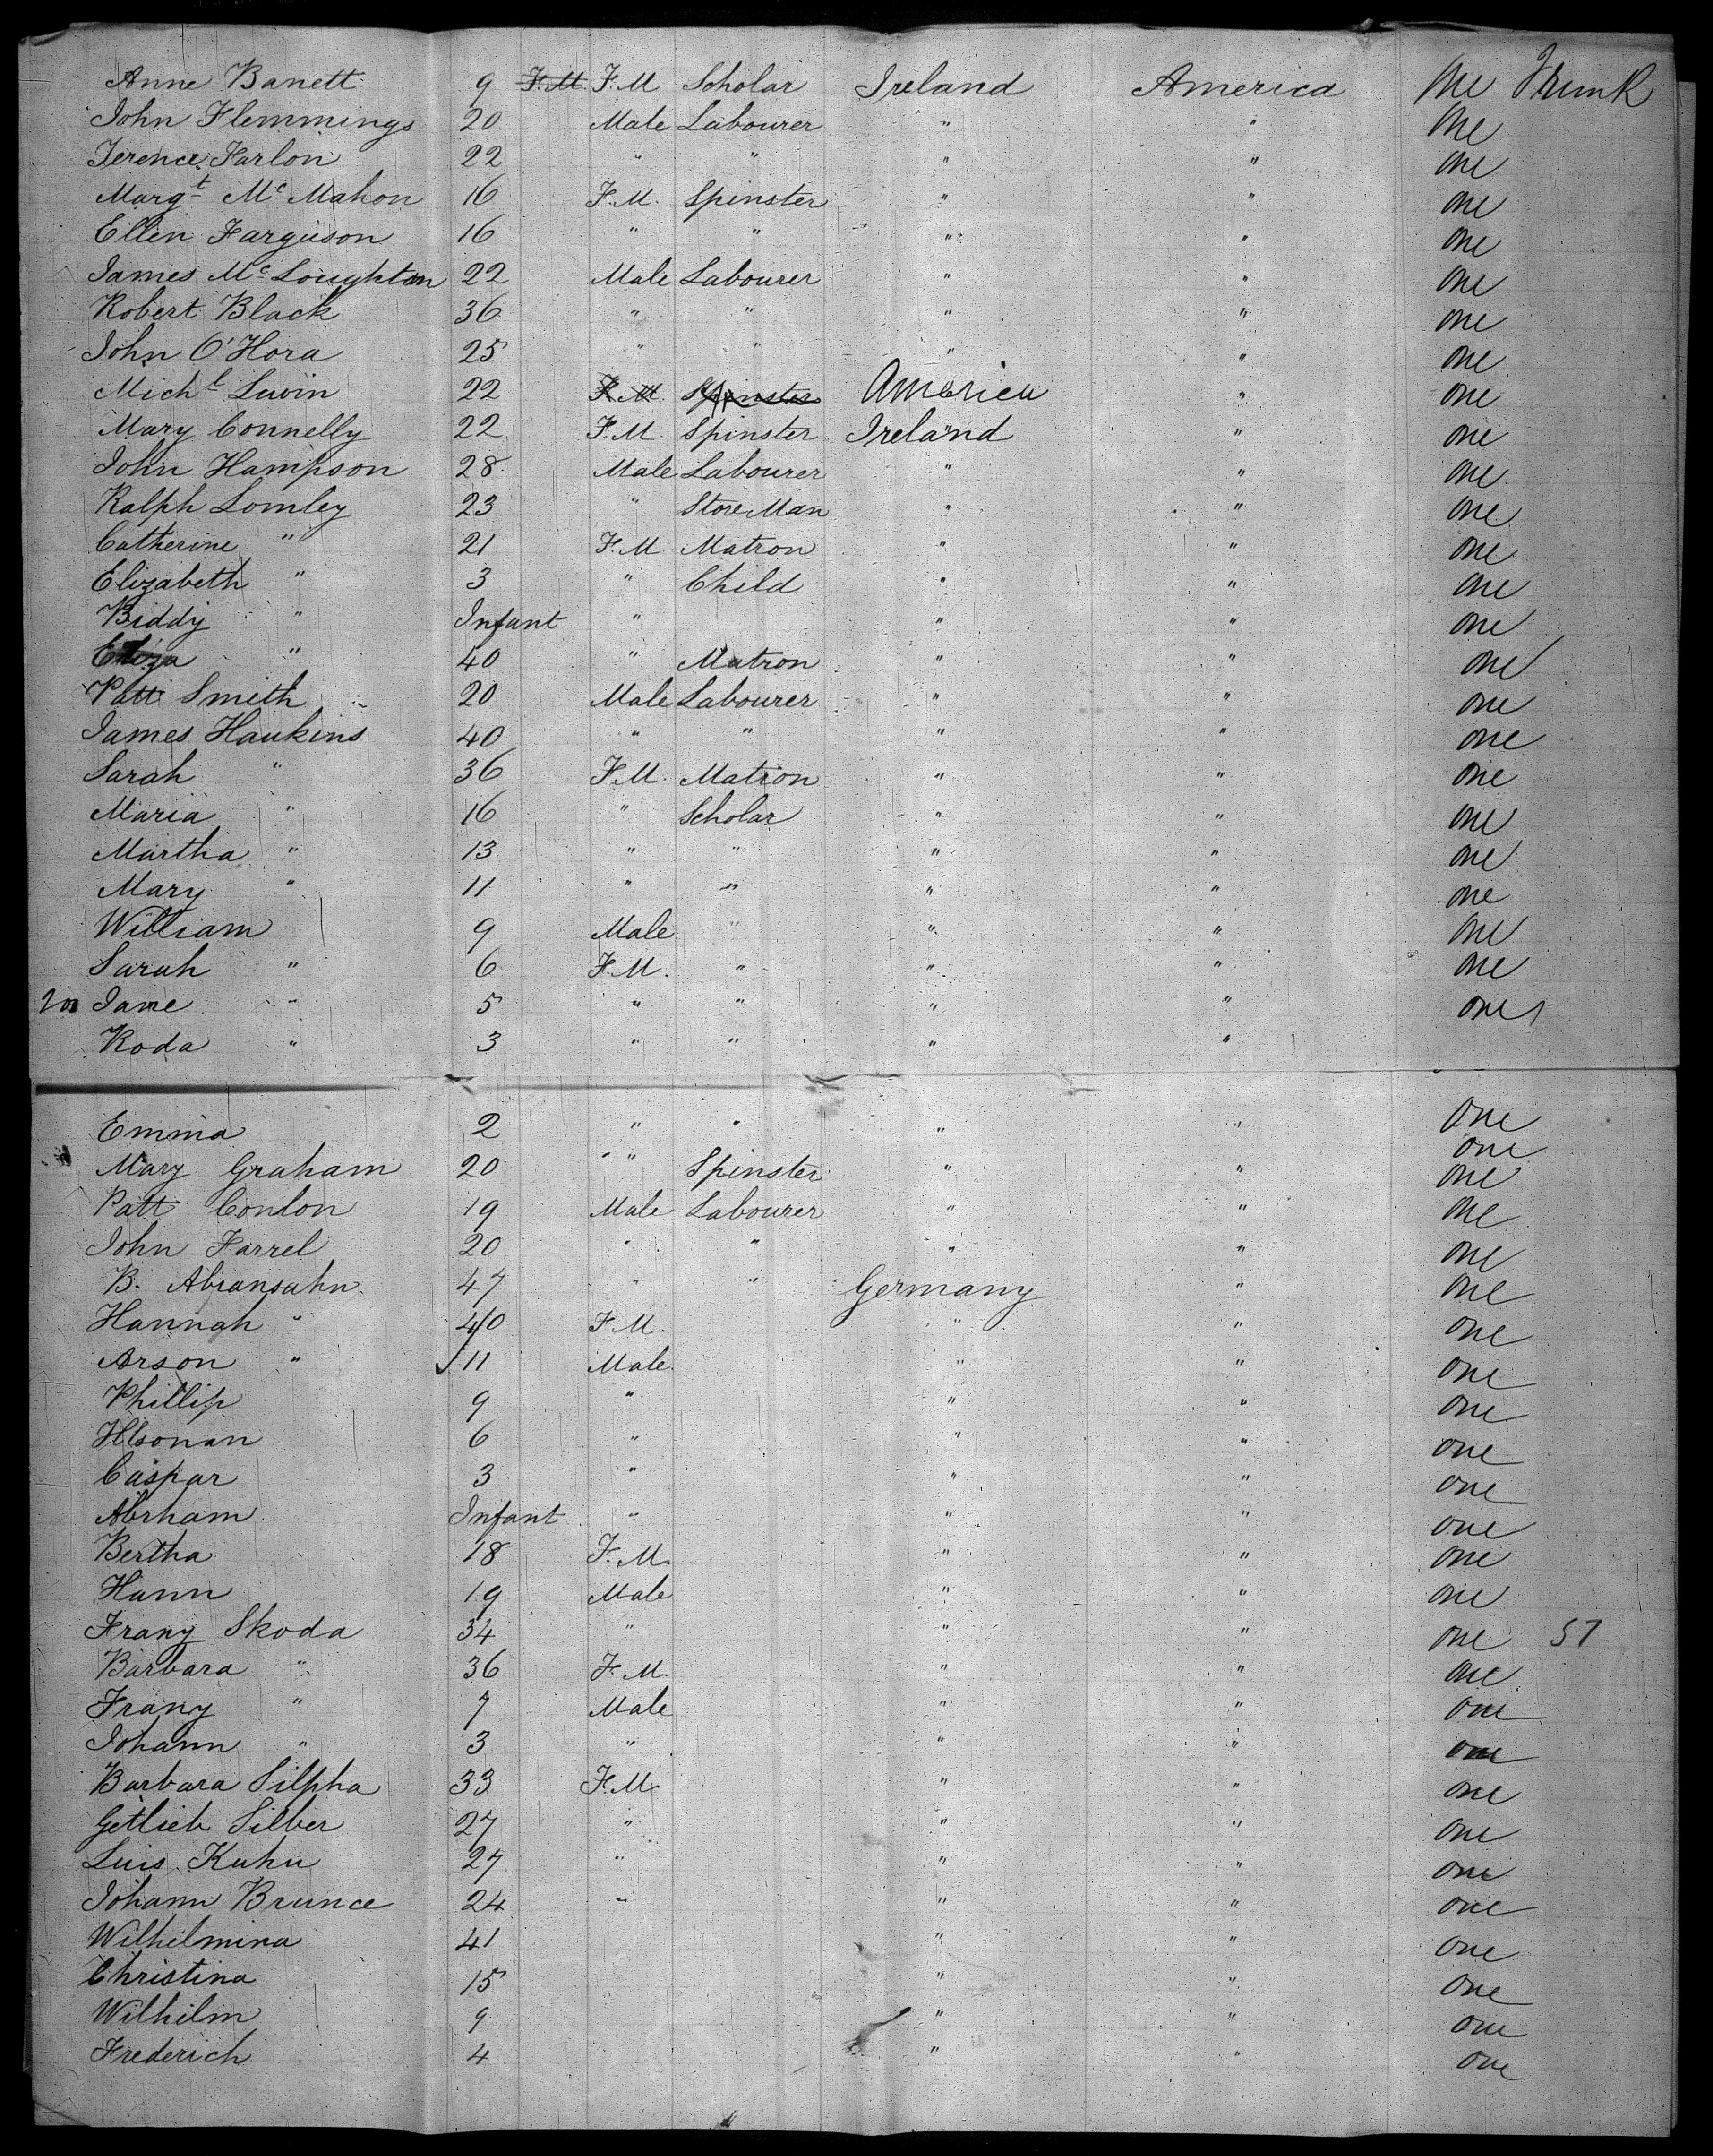 Anne Banett 9 F.M. F.M Scholar Ireland America One Trunk
John Flemmings 20 Male Labourer " " One
Terence Farlon 22 " " " " One
Margt Mc Mahon 16 F.M. Spinster " " One
Ellen Farguson 16 " " " " One
James Mc Loughton 22 Male Labourer " " One
Robert Black 36 " " " " One
John O'Hora 25 " " " " One
Michl 22 F.M. Spinster America " One
Mary Connelly 22 F.M. Spinster Ireland " One
John Hampson 28 Male Labourer " " One
Ralph Lomley 23 " Store Man " " One
Catherine " 21 F.M Matron " " One
Elizabeth " 3 " Child " " One
Biddy " Infant " " " One
Eliza " 40 " Matron " " One
Patt Smith 20 Male Labourer " " One
James Haukins 40 " " " " One
Sarah " 36 F.M. Matron " " One
Maria " 16 " Scholar " " One
Martha " 13 " " " " One
Mary " 11 " " " " One
William 9 Male " " " One
Sarah " 6 F.M. " " " One
200 Jane " 5 " " " " One
Roda " 3 " " " "
Emma 2 " " " " One
One
Mary Graham 20 " Spinster " " One
Patt Conlon 19 Male Labourer " " One
John Farrel 20 " " " " One
B. Abransahn 47 " " Germany " One
Hannah " 40 F.M. " " One
Arson " 11 Male " " One
Phillip 9 " " " One
6 " " " One
Caspar 3 " " " One
Abrham Infant " " " One
Bertha 18 F.M. " " One
Hann 19 Male " " One
Frany Skoda 34 " " " One 57
Barbara " 36 F.M. " " One
Frany " 7 Male " " One
Johann " 3 " " " One
Barbara Silpha 33 F.M. " " One
Getlieb Silber 27 " " " One
Luis Kuhu 27 " " " One
Johann Brunce 24 " " " One
Wilhilmina 41 " " One
Christina 15 " " One
Wilhilm 9 " " One
Frederich 4 " " One